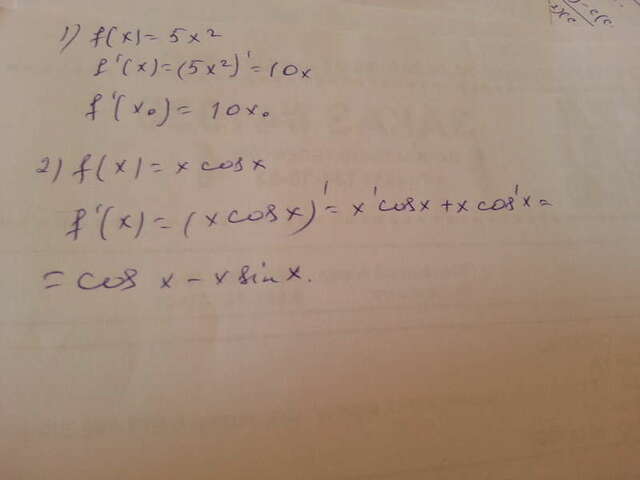 1) f(x) = 5x²
f'(x) = (5x²)' = 10x
f'(x₀) = 10x₀
2) f(x) = x cos x
f'(x) = (x cos x)' = x' cos x + x cos' x =
= cos x - x sin x.